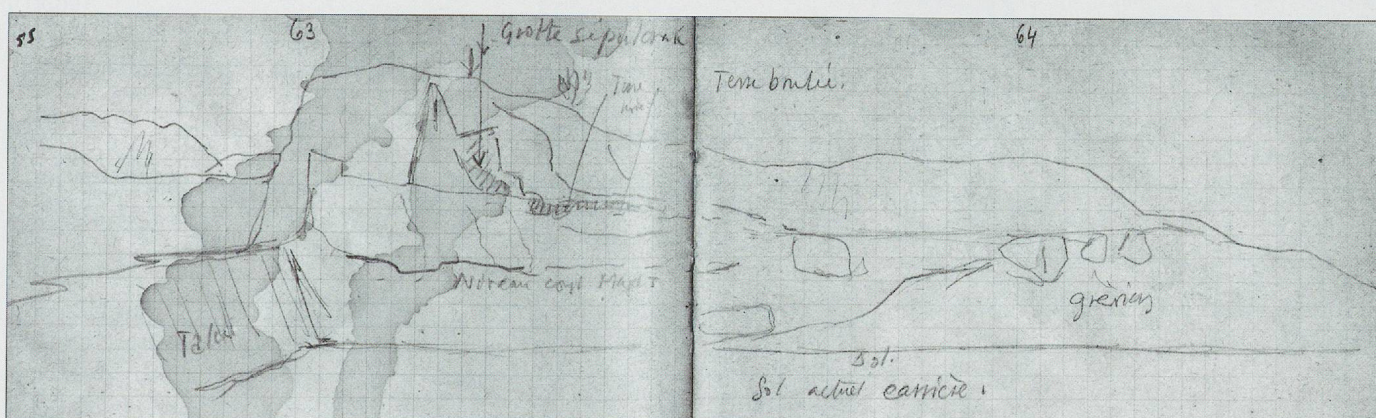 55
63
Grotte sépulcrale
Terre
Talus
Niveau
64
Terre brulée.
grèsiens
Sol.
Sol actuel carrière.